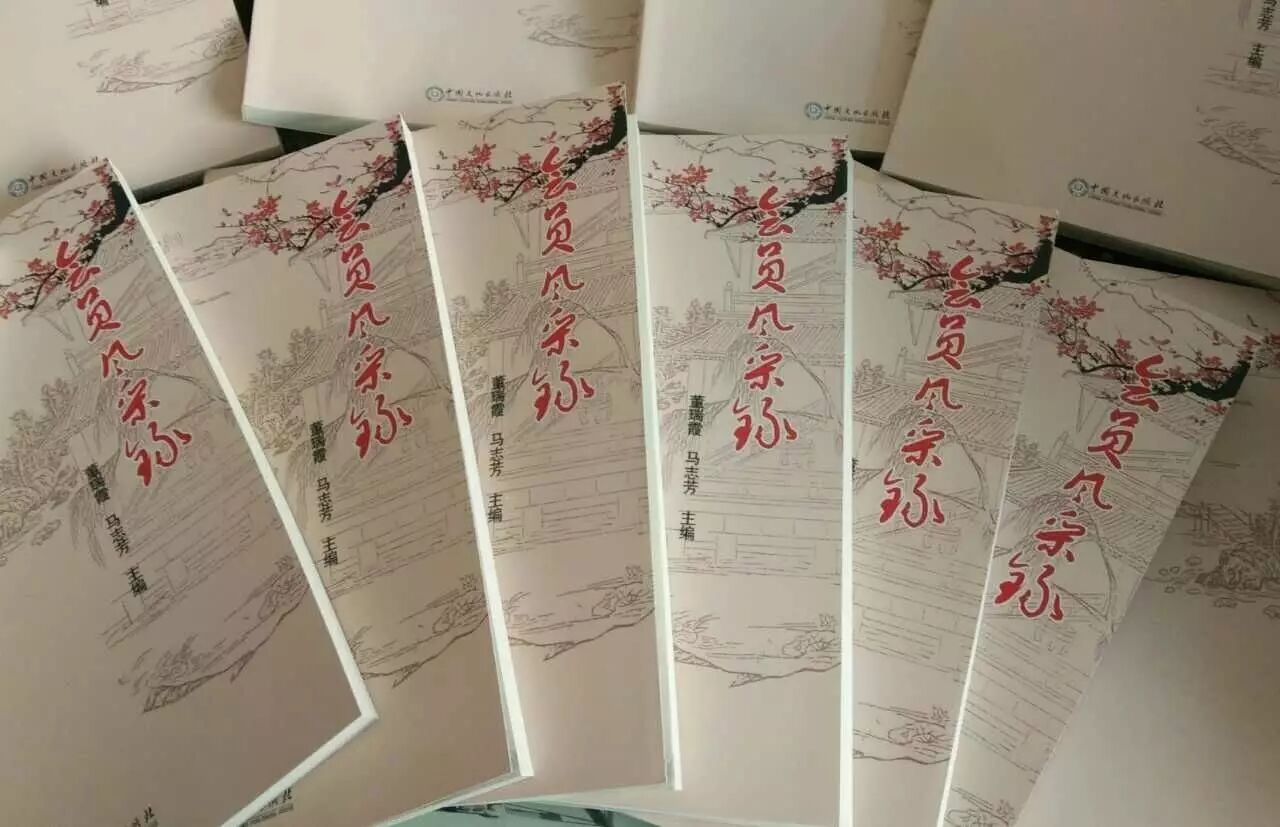 编
主编
中国文化出版社
中国文化出版社
中国文化出版社
中国文化出版社
会员风采録
董瑞霞 马志芳 主编
会员风采録
董瑞霞 马志芳 主编
会员风采録
董瑞霞 马志芳 主编
会员风采録
董瑞霞 马志芳 主编
会员风采録
会员风采録